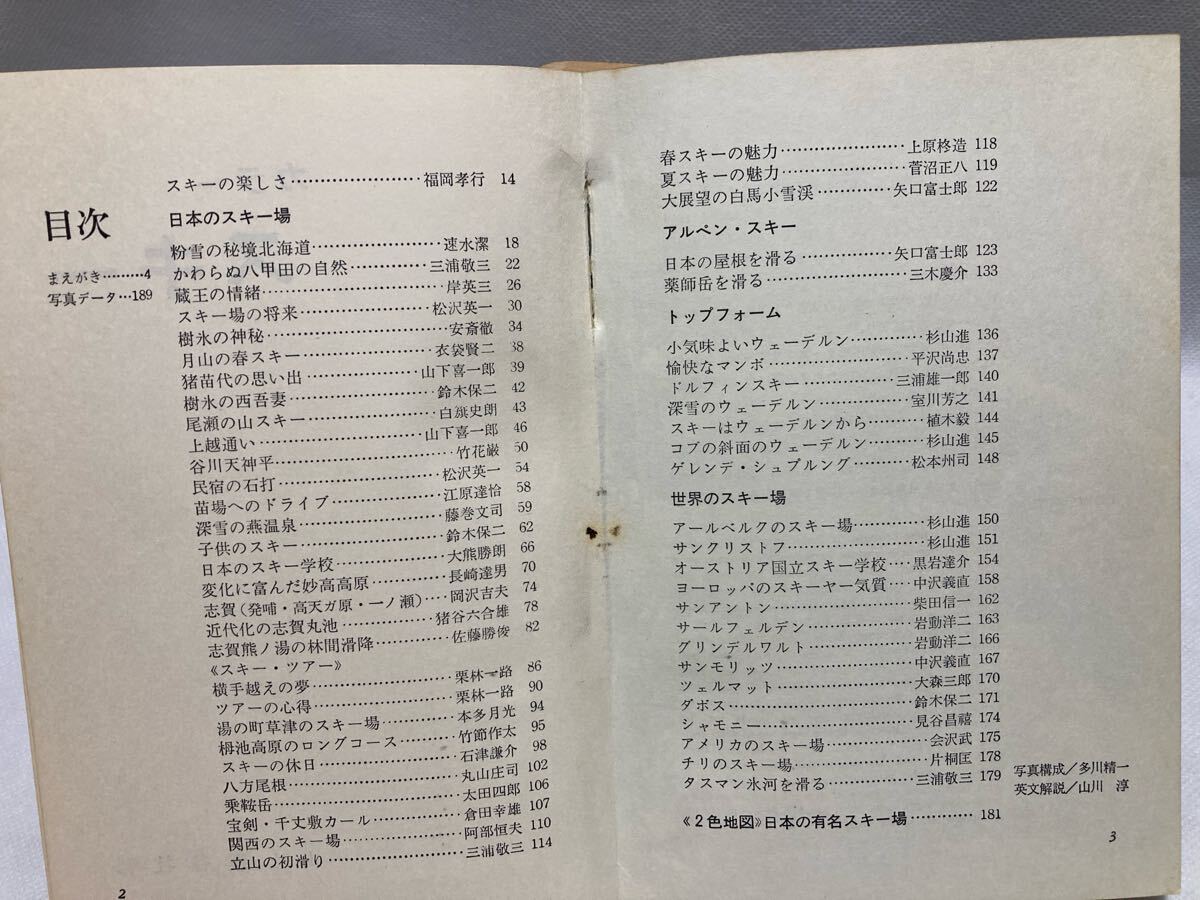 目次
まえがき………4
写真データ…189
スキーの楽しさ………………福岡孝行 14
日本のスキー場
粉雪の秘境北海道………………速水潔 18
かわらぬ八甲田の自然…………三浦敬三 22
蔵王の情緒………………岸英三 26
スキー場の将来………………松沢英一 30
樹氷の神秘………………安斎徹 34
月山の春スキー………………衣袋賢二 38
猪苗代の思い出………………山下喜一郎 39
樹氷の西吾妻………………鈴木保二 42
尾瀬の山スキー………………白籏史朗 43
上越通い………………山下喜一郎 46
谷川天神平………………竹花巌 50
民宿の石打………………松沢英一 54
苗場へのドライブ…………江原達怡 58
深雪の燕温泉………………藤巻文司 59
子供のスキー………………鈴木保二 62
日本のスキー学校…………大熊勝朗 66
変化に富んだ妙高高原…………長崎達男 70
志賀(発哺・高天ガ原・一ノ瀬)…岡沢吉夫 74
近代化の志賀丸池…………猪谷六合雄 78
志賀熊ノ湯の林間滑降…………佐藤勝俊 82
《スキー・ツアー》
横手越えの夢………………栗林一路 86
ツアーの心得………………栗林一路 90
湯の町草津のスキー場…………本多月光 94
栂池高原のロングコース………竹節作太 95
スキーの休日………………石津謙介 98
八方尾根………………丸山庄司 102
乗鞍岳………………太田四郎 106
宝剣・千丈敷カール…………倉田幸雄 107
関西のスキー場………………阿部恒夫 110
立山の初滑り………………三浦敬三 114
2
春スキーの魅力………………上原柊造 118
夏スキーの魅力………………菅沼正八 119
大展望の白馬小雪渓…………矢口富士郎 122
アルペン・スキー
日本の屋根を滑る…………矢口富士郎 123
薬師岳を滑る………………三木慶介 133
トップフォーム
小気味よいウェーデルン…………杉山進 136
愉快なマンボ………………平沢尚忠 137
ドルフィンスキー…………三浦雄一郎 140
深雪のウェーデルン…………室川芳之 141
スキーはウェーデルンから………植木毅 144
コブの斜面のウェーデルン………杉山進 145
ゲレンデ・シュプルング………松本州司 148
世界のスキー場
アールベルクのスキー場…………杉山進 150
サンクリストフ………………杉山進 151
オーストリア国立スキー学校…黒岩達介 154
ヨーロッパのスキーヤー気質…中沢義直 158
サンアントン………………柴田信一 162
サールフェルデン…………岩動洋二 163
グリンデルワルト…………岩動洋二 166
サンモリッツ………………中沢義直 167
ツェルマット………………大森三郎 170
ダボス………………鈴木保二 171
シャモニー………………見谷昌禧 174
アメリカのスキー場…………会沢武 175
チリのスキー場………………片桐匡 178
タスマン氷河を滑る…………三浦敬三 179
《2色地図》日本の有名スキー場…………181
写真構成/多川精一
英文解説/山川 淳
3